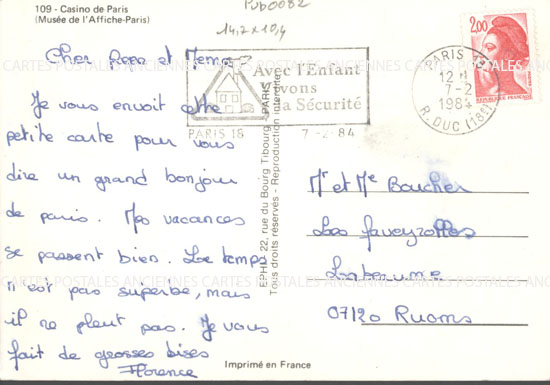 109 - Casino de Paris
(Musée de l'Affiche-Paris)
Pub0082
14,2x10,4
Cher Pepe et Meme
Je vous envoit cette
petite carte pour vous
dire un grand bonjour
de paris. Mes vacances
se passent bien. Le temps
n'est pas superbe, mais
il ne pleut pas. Je vous
fait de grosses bises
Florence
Avec l'Enfant
vivons
la Sécurité
PARIS 18
7-2-84
PARIS
12 H
7-2
1984
R. DUC (18e)
2,00
REPUBLIQUE FRANÇAISE
EPHI - 22, rue du Bourg Tibourg - PARIS
Tous droits réservés - Reproduction interdite
Mr et Me Boucher
Les faveyrolles
Labeaume
07120 Ruoms
Imprimé en France
CARTES POSTALES ANCIENNES CARTES POSTALES ANCIENNES
CARTES POSTALES ANCIENNES CARTES POSTALES ANCIENNES